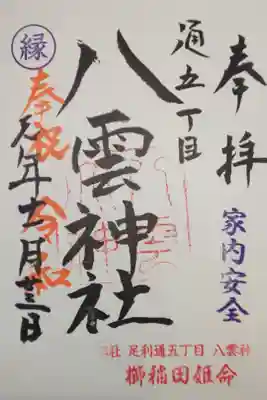 奉拝
家内安全
通五丁目
八雲神社
縁
奉祝 令和
元年十一月廿三日
社 足利通五丁目 八雲神
櫛稲田姫命